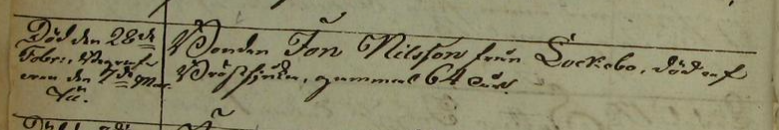 Död den 28de
Febr:, begrafv
even den 7de Mar
tii.
Bonden Jon Nilsson från Lockebo, död af
Bröstsjuka, gammal 64 år.